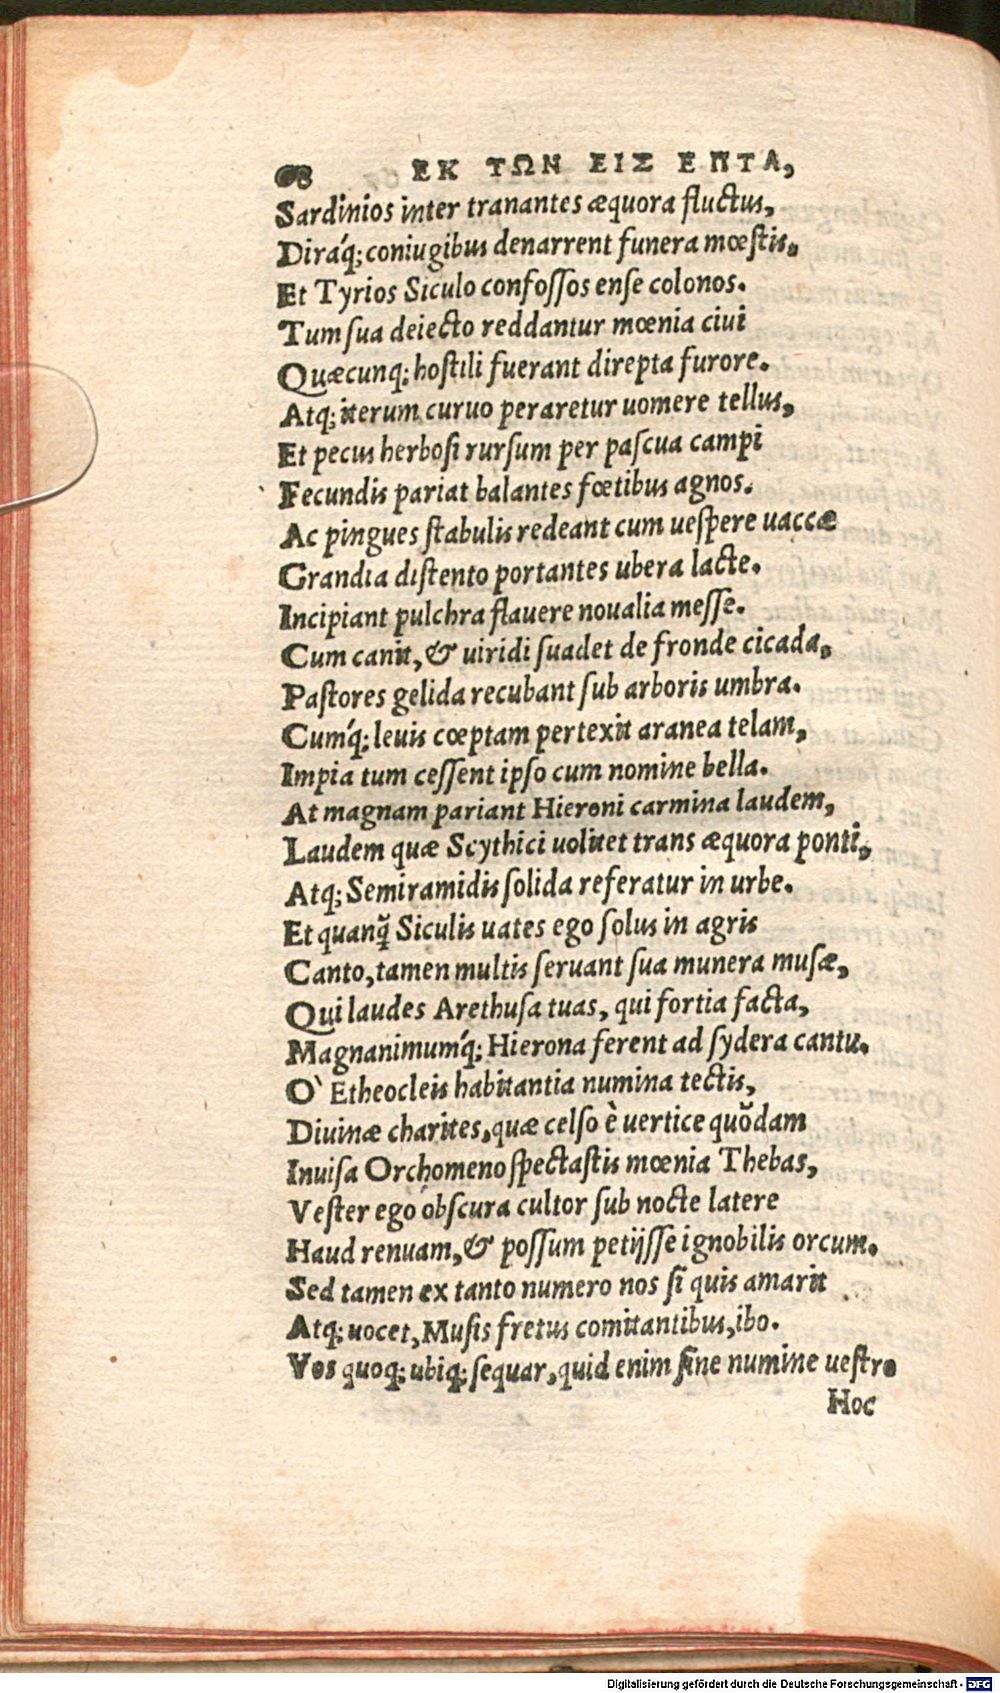 68 ΕΚ ΤΩΝ ΕΙΣ ΕΠΤΑ,
Sardinios inter tranantes æquora fluctus,
Diraq́; coniugibus denarrent funera mœstis.
Et Tyrios Siculo confossos ense colonos.
Tum sua deiecto reddantur mœnia ciui
Quæcunq; hostili fuerant direpta furore.
Atq; iterum curuo peraretur uomere tellus,
Et pecus herbosi rursum per pascua campi
Fecundis pariat balantes fœtibus agnos.
Ac pingues stabulis redeant cum uespere uaccæ
Grandia distento portantes ubera lacte.
Incipiant pulchra flauere noualia messe.
Cum canit, & uiridi suadet de fronde cicada,
Pastores gelida recubant sub arboris umbra.
Cumq́; leuis cœptam pertexit aranea telam,
Impia tum cessent ipso cum nomine bella.
At magnam pariant Hieroni carmina laudem,
Laudem quæ Scythici uolitet trans æquora ponti,
Atq; Semiramidis solida referatur in urbe.
Et quanq̃ Siculis uates ego solus in agris
Canto, tamen multis seruant sua munera musæ,
Qui laudes Arethusa tuas, qui fortia facta,
Magnanimumq́; Hierona ferent ad sydera cantu.
O` Etheocleis habitantia numina tectis,
Diuinæ charites, quæ celso è uertice quõdam
Inuisa Orchomeno spectastis mœnia Thebas,
Vester ego obscura cultor sub nocte latere
Haud renuam, & possum petijsse ignobilis orcum.
Sed tamen ex tanto numero nos si quis amarit
Atq; uocet, Musis fretus comitantibus, ibo.
Vos quoq; ubiq; sequar, quid enim sine numine uestro
Hoc
Digitalisierung gefördert durch die Deutsche Forschungsgemeinschaft - DFG